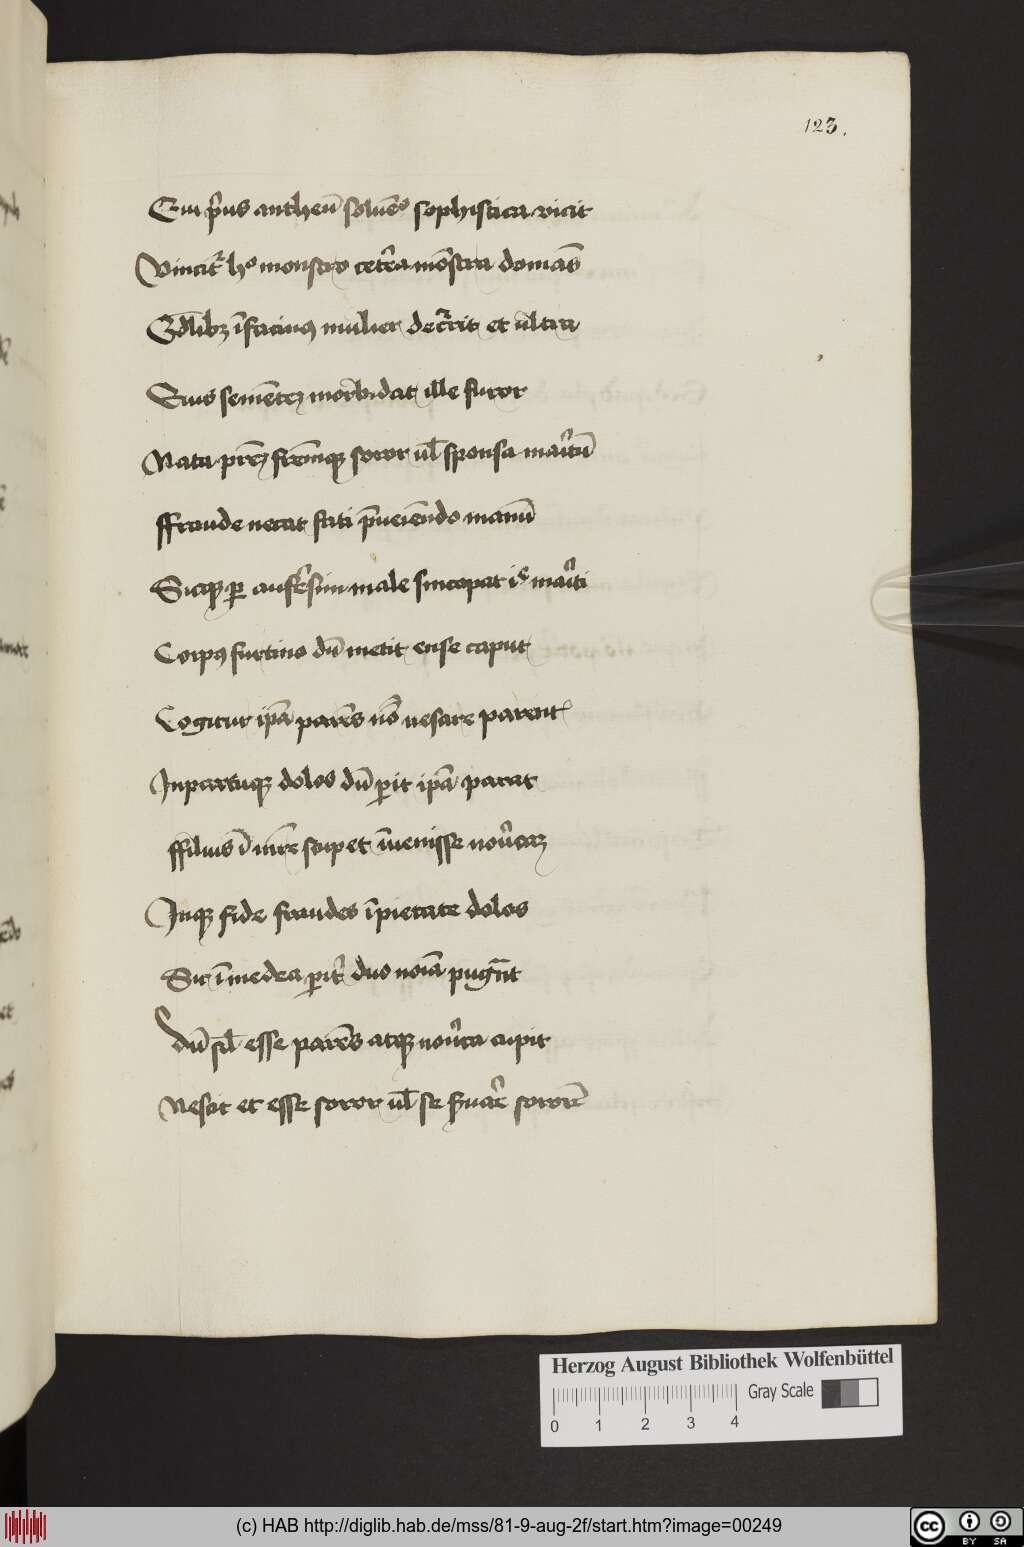 123.
Cui p̄us antheū soluēs sophistica vicit
Vincit᷑ hͦ monstro cet̄a mōstra domās
Qdlibꝫ ī facinꝰ mulier decͬrit et ultra
Eius semēteꝫ morbidat ille furor
Nata pr̄eꝫ fr̄emqꝫ soror ul̄ sponsa maritū
ffraude necat fati p̄ueiēndo manū
Sicqꝫ ꝑ aufēsim male sincopat iͨ mariti
Corpꝰ furtiuo dū metit ense caput
Cogitur ip̄a parēs nō nesare parent
Inpartuqꝫ dolos dū ꝑit ip̄a parat
ffilius ī mr̄e stupet īuenisse nouͬcaꝫ
Inqꝫ fide fraudes īpietate dolos
Sic ī medea ꝑit᷑ duo noīa pugn̄t
Dū sil̄ esse parēs atqꝫ nouͬca cupit
Nescit et esse soror ul̄ se ẜuar̄e sororē
Herzog August Bibliothek Wolfenbüttel
Gray Scale
0 1 2 3 4
(c) HAB http://diglib.hab.de/mss/81-9-aug-2f/start.htm?image=00249
cc BY SA